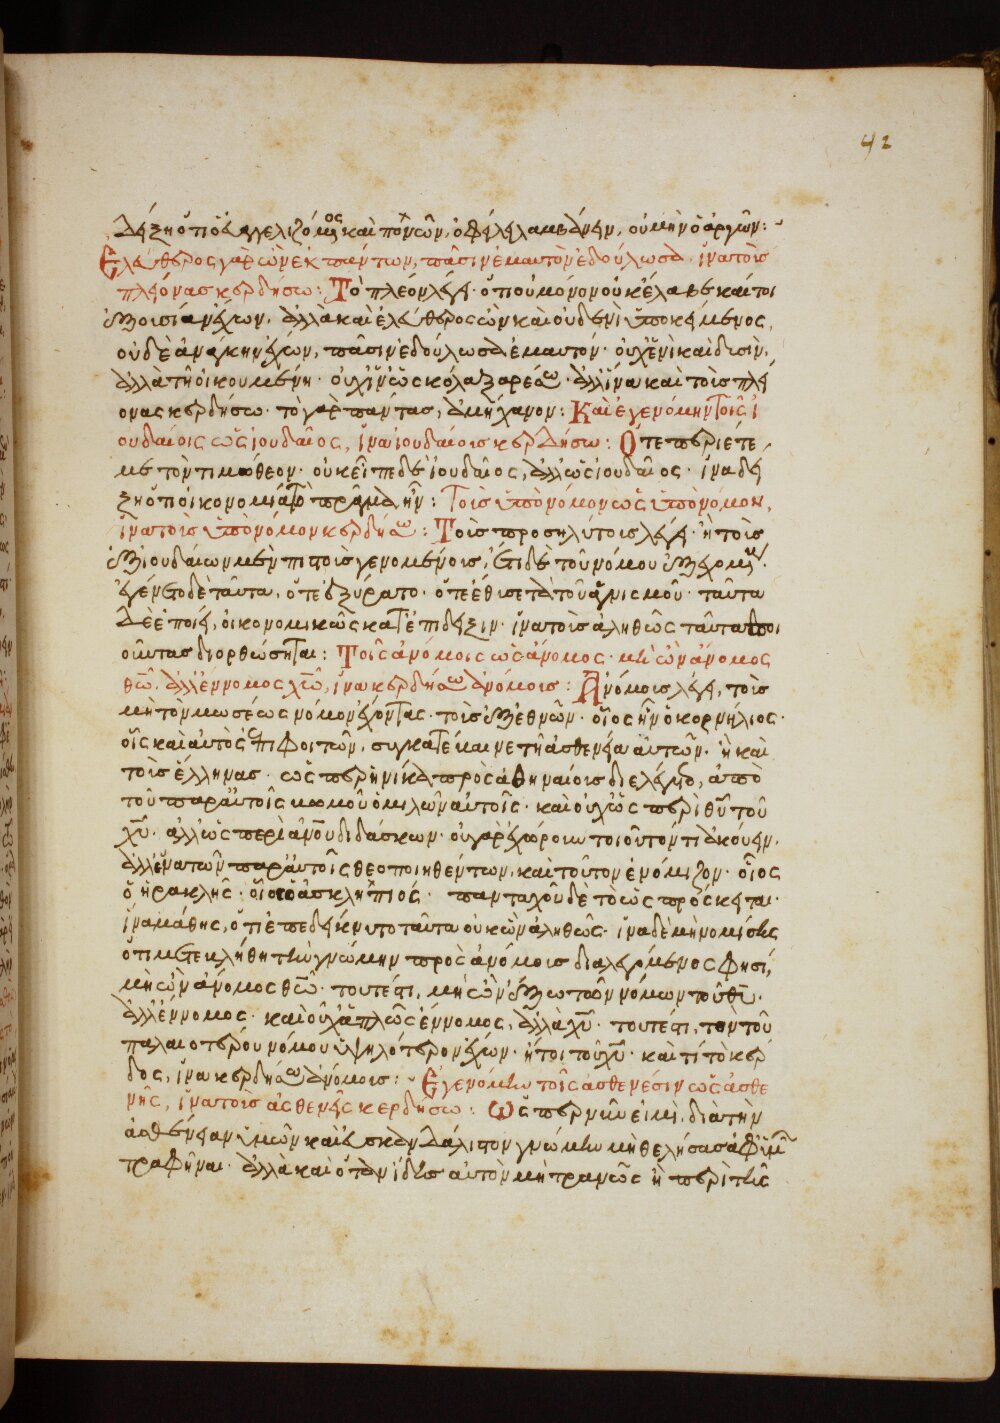 42
δείξῃ ὅτι ὁ εὐαγγελιζόμενος καὶ πονῶν, ὀφείλει λαμβάνειν, οὐ μὴν ὁ ἀργῶν:
Ἐλεύθερος γὰρ ὢν ἐκ πάντων, πᾶσιν ἐμαυτὸν ἐδούλωσα, ἵνα τοὺς
πλείονας κερδήσω: Τὸ πλέον λέγει· ὅτι οὐ μόνον οὐκ ἔλαβε καίτοι
ἐξουσίαν ἔχων, ἀλλὰ καὶ ἐλεύθερος ὢν καὶ οὐδενὶ ὑποκείμενος,
οὐδὲ ἀνάγκην ἔχων, πᾶσιν ἐδούλωσα ἐμαυτόν· οὐχ ἑνὶ καὶ δυσὶν,
ἀλλὰ τῇ οἰκουμένῃ· ἀλλ' ἵνα καὶ τοὺς πλεί
ονας κερδήσω· τὸ γὰρ πάντας, ἀμήχανον: Καὶ ἐγενόμην τοῖς ἰ
ουδαίοις ὡς ἰουδαῖος, ἵνα ἰουδαίους κερδήσω: Ὅτε περιέτε
με τὸν τιμόθεον· οὐκ εἶπε δὲ ἰουδαῖος, ἀλλ' ὡς ἰουδαῖος· ἵνα δεί
ξῃ ὅτι οἰκονομία τὸ πρᾶγμα ἦν: Τοῖς ὑπὸ νόμον ὡς ὑπὸ νόμον,
ἵνα τοὺς ὑπὸ νόμον κερδήσω: Τοὺς προσηλύτους λέγει· ἢ τοὺς
ἐξ ἰουδαίων μὲν πιστοὺς γενομένους, ἔτι δὲ τοῦ νόμου ἐξεχομένους·
ἐγένετο δὲ ταῦτα, ὅτε ἐξύρατο· ὅτε ἔθυσε τὰ τοῦ ἁγνισμοῦ· ταῦτα
δὲ ἐποίει, οἰκονομικῶς κατ' ἐπίδειξιν· ἵνα τοὺς ἀληθῶς ταῦτα ποι
οῦντας διορθώσηται: Τοῖς ἀνόμοις ὡς ἄνομος· μὴ ὢν ἄνομος
θῶ, ἀλλ' ἔννομος χῶ, ἵνα κερδήσω ἀνόμους: Ἀνόμους λέγει, τοὺς
μὴ τὸν μωσέως νόμον ἔχοντας· τοὺς ἐξ ἐθνῶν· οἷος ἦν ὁ κορνήλιος·
οἷς καὶ αὐτὸς ἐπιφοιτῶν, συγκατέβαινε τῇ ἀσθενείᾳ αὐτῶν· ἢ καὶ
τοὺς ἕλληνας· ὥσπερ ἡνίκα πρὸς ἀθηναίους διελέγετο, ἀπὸ
τοῦ παρ' αὐτοῖς βωμοῦ ὁμιλῶν αὐτοῖς· καὶ οὐχ ὡς περὶ θῦ τοῦ
χῦ· ἀλλ' ὡς περὶ ἀνοῦ διδάσκων· οὐ γὰρ ἐχώρουν τοιοῦτόν τι ἀκούειν,
ἀλλ' ἕνα τῶν παρ' αὐτοῖς θεοποιηθέντων, καὶ τοῦτον ἐνόμιζον· οἷος
ὁ ἡρακλῆς· οἷος ὁ ἀσκληπιός· πανταχοῦ δὲ τὸ ὡς πρόσκειται·
ἵνα μάθῃς, ὅτι ἐπεδείκνυτο ταῦτα οὐκ ὢν ἀληθῶς· ἵνα δὲ μὴ νομίσῃς
ὅτι μετεκλήθη τὴν γνώμην πρὸς ἀνόμους διαλεγόμενος φησί,
μὴ ὢν ἄνομος θῶ· τουτέστι, μὴ ὢν ἔξω τῶν νόμων τοῦ θῦ·
ἀλλ' ἔννομος· καὶ οὐχ ἁπλῶς ἔννομος, ἀλλὰ χῦ· τουτέστι, τὸν τοῦ
παλαιοτέρου νόμου ὑψηλότερον ἔχων· ἤτοι τοῦ χῦ· καὶ τί τὸ κέρ
δος, ἵνα κερδήσω ἀνόμους: Ἐγενόμην τοῖς ἀσθενέσιν ὡς ἀσθε
νὴς, ἵνα τοὺς ἀσθενεῖς κερδήσω: Ὥσπερ νῦν εἰμι, διὰ τὴν
ἀσθένειαν ὑμῶν καὶ εὐσκανδάλιστον γνώμην μὴ θελήσας
τραφῆναι· ἀλλὰ καὶ ὅταν ἴδῃς αὐτὸν μὴ τρανῶς ἢ περὶ τῆς